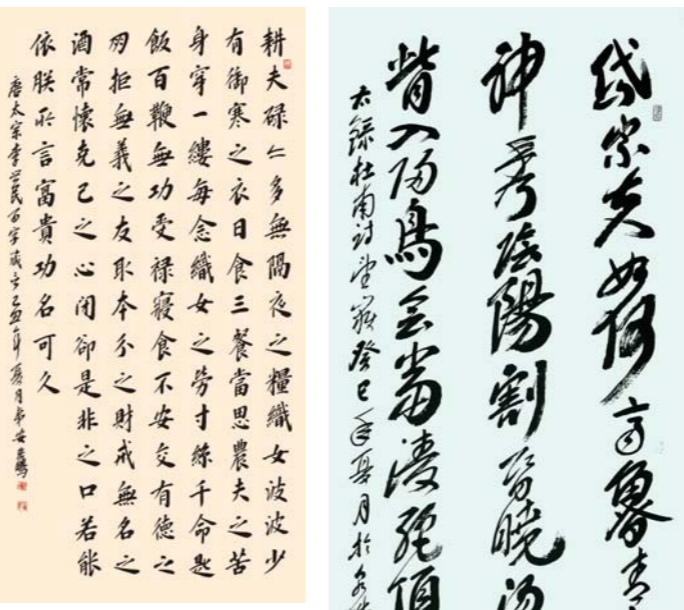 耕夫碌々多無隔夜之糧織女波波少
有御寒之衣日食三餐當思農夫之苦
身穿一縷每念織女之勞寸絲千命匙
飯百鞭無功受禄寢食不安交有德之
朋拒無義之友取本分之財戒無名之
酒常懷克己之心闭卻是非之口若能
依朕所言富貴功名可久
唐太宗李世民百字箴言己丑年夏月
岱宗夫如何齊魯青
神秀陰陽割昏曉湯
眥入歸鳥會當凌絕頂
右錄杜甫詩望嶽癸巳年夏月於